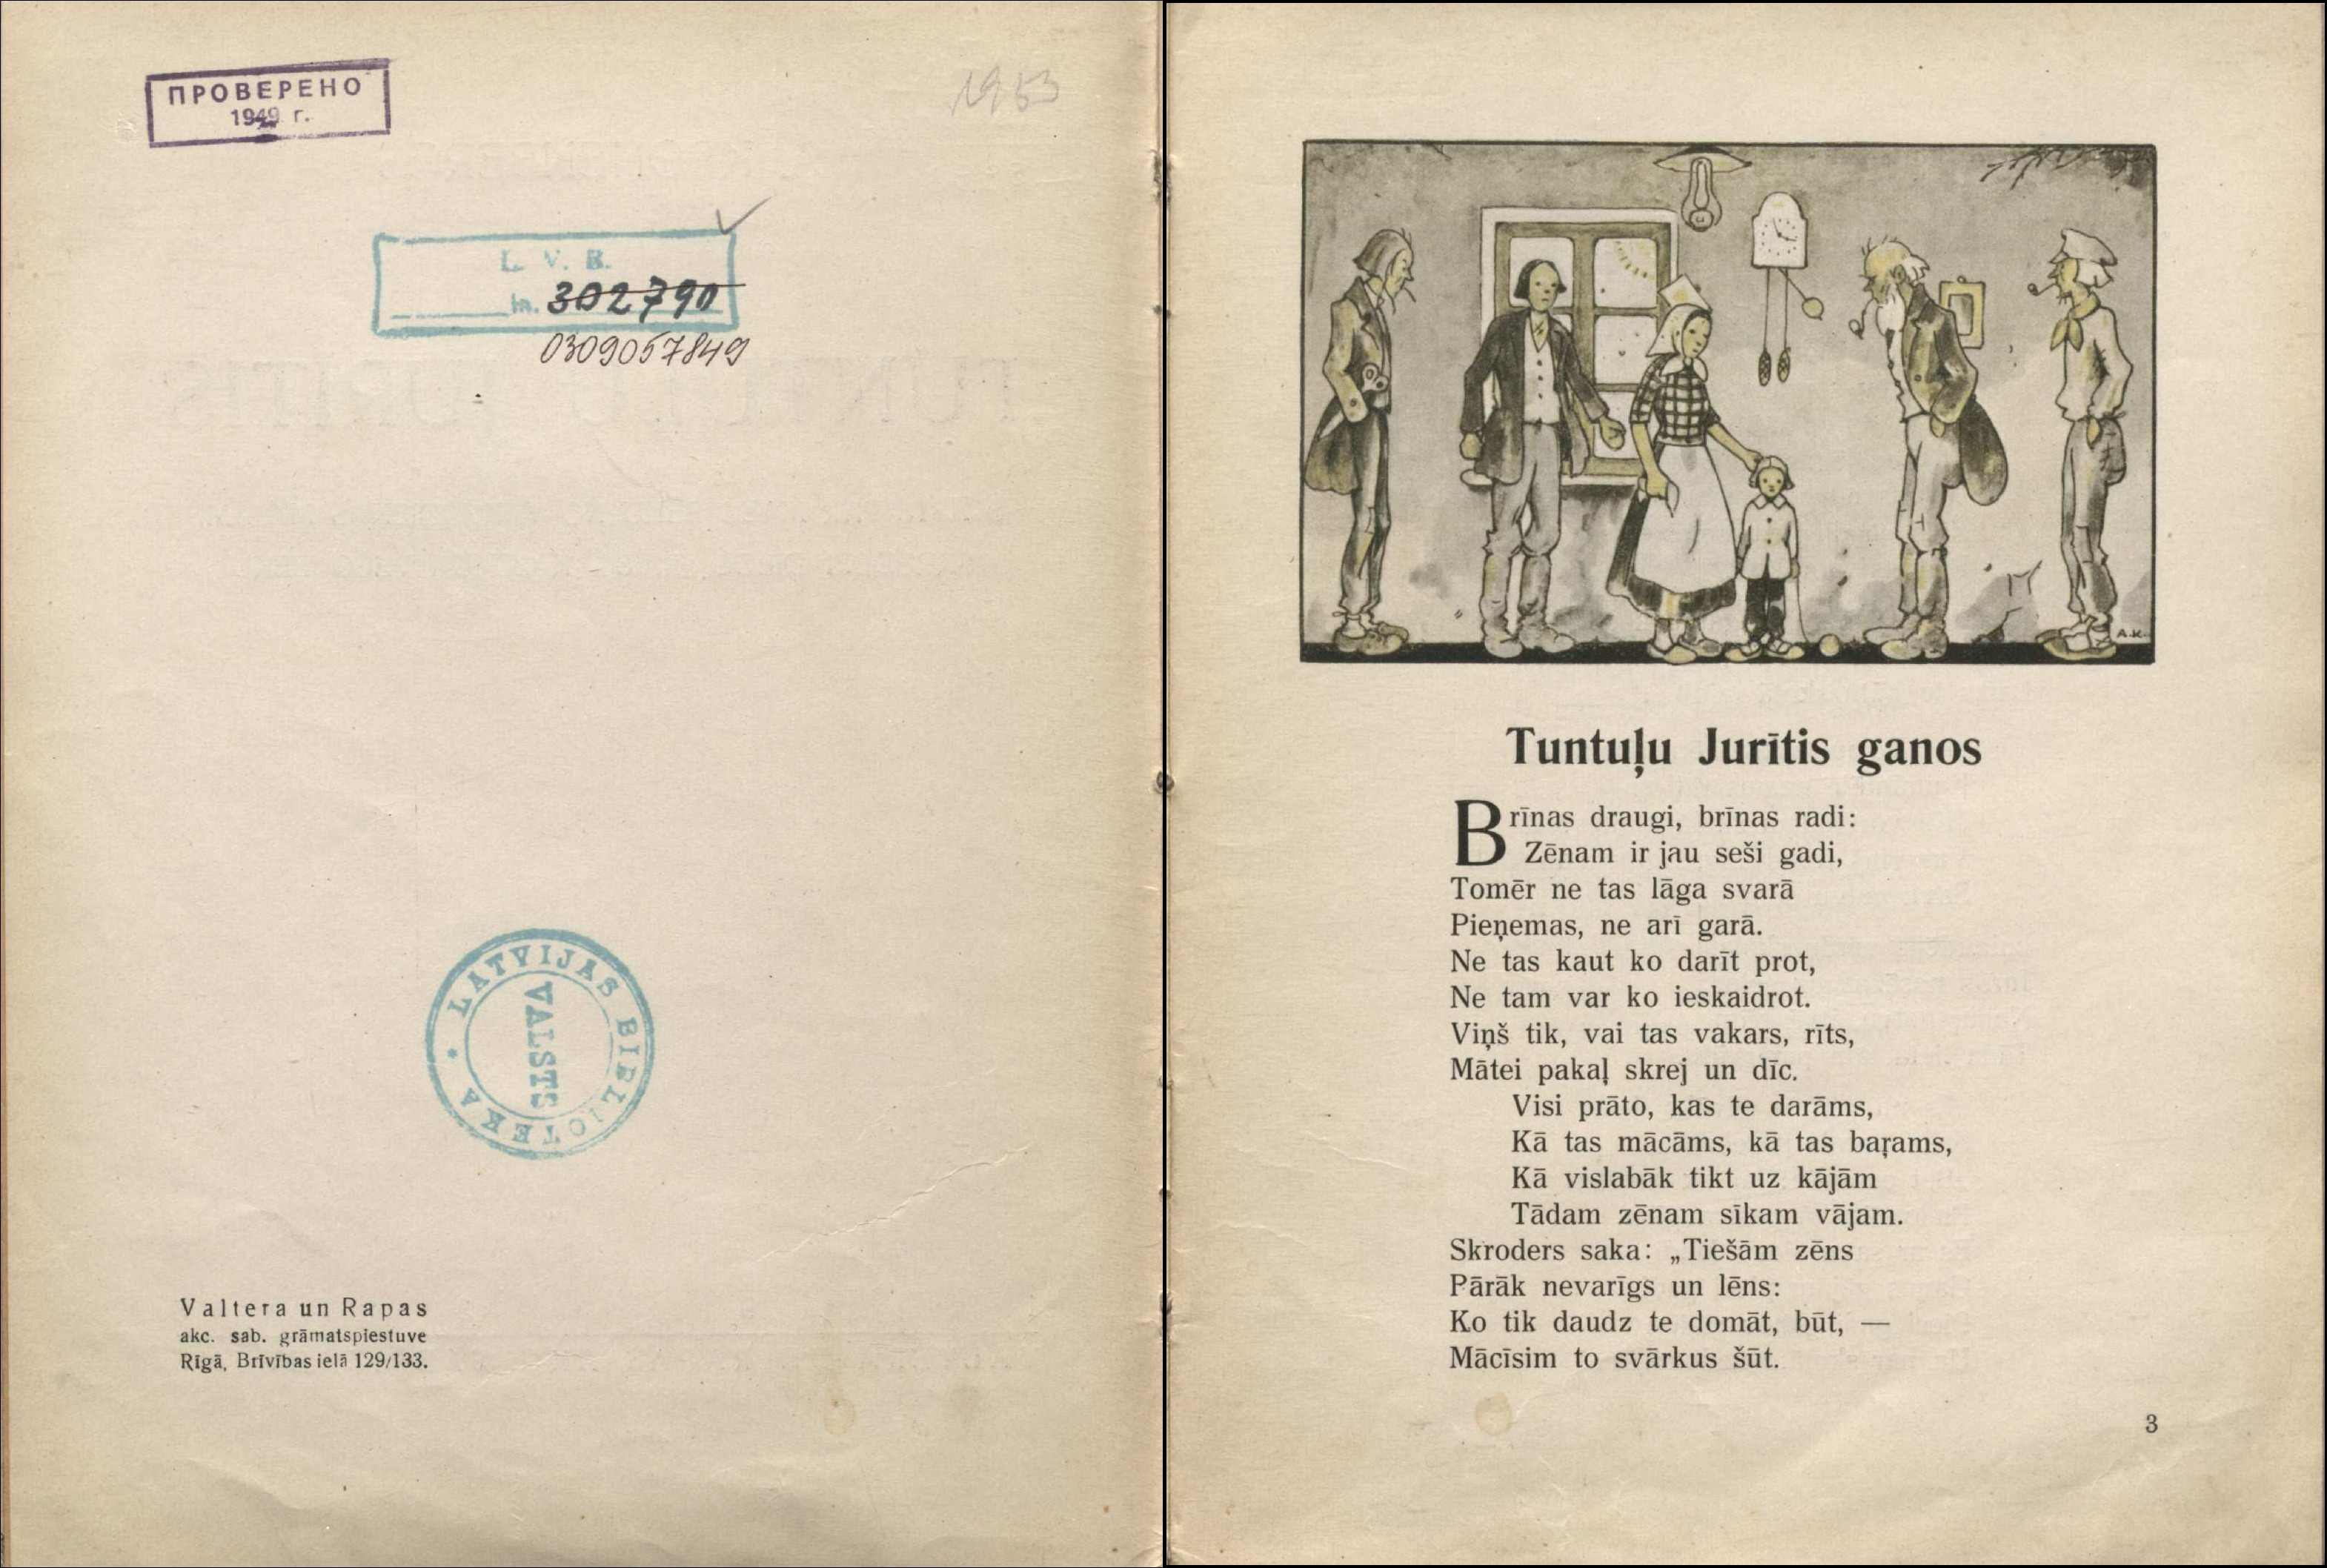 ПРОВЕРЕНО
1949 г.
1953
L. V. B.
In. 302790
0309057849
LATVIJAS BIBLIOTEKA
VALSTS
Valtera un Rapas
akc. sab. grāmatspiestuve
Rīgā, Brīvības ielā 129/133.
A.K.
Tuntuļu Jurītis ganos
Brīnas draugi, brīnas radi:
Zēnam ir jau seši gadi,
Tomēr ne tas lāga svarā
Pieņemas, ne arī garā.
Ne tas kaut ko darīt prot,
Ne tam var ko ieskaidrot.
Viņš tik, vai tas vakars, rīts,
Mātei pakaļ skrej un dīc.
Visi prāto, kas te darāms,
Kā tas mācāms, kā tas baŗams,
Kā vislabāk tikt uz kājām
Tādam zēnam sīkam vājam.
Skroders saka: „Tiešām zēns
Pārāk nevarīgs un lēns:
Ko tik daudz te domāt, būt, —
Mācīsim to svārkus šūt.
3